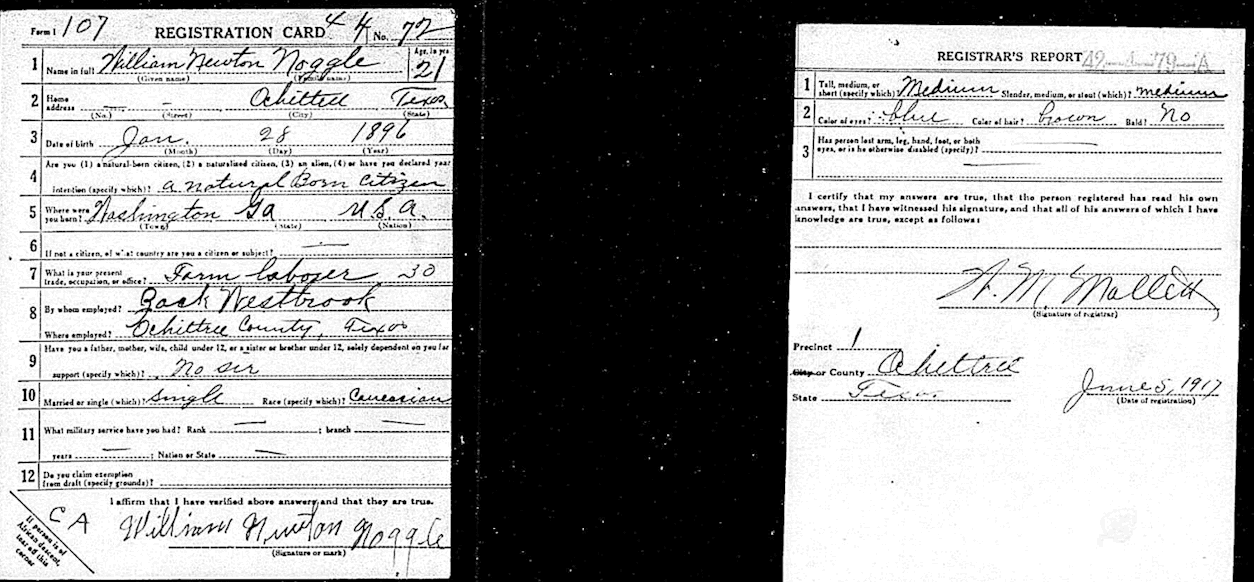 Form 1 107 REGISTRATION CARD 4 4 No. 72
1 Name in full William Newton Noggle Age, in yrs 21
(Given name) (Family name)
2 Home address — - Ochiltree Texas
(No.) (Street) (City) (State)
3 Date of birth Jan. 28 1896
(Month) (Day) (Year)
Are you (1) a natural-born citizen, (2) a naturalized citizen, (3) an alien, (4) or have you declared your
4 intention (specify which)? a natural Born Citizen
5 Where were you born? Washington Ga U.S.A.
(Town) (State) (Nation)
6 If not a citizen, of what country are you a citizen or subject? —
7 What is your present trade, occupation, or office? Farm laborer 30
8 By whom employed? Zack Westbrook
Where employed? Ochiltree County, Texas
9 Have you a father, mother, wife, child under 12, or a sister or brother under 12, solely dependent on you for
support (specify which)? No sir
10 Married or single (which)? Single Race (specify which)? Caucasian
11 What military service have you had? Rank — ; branch —
years — ; Nation or State —
12 Do you claim exemption from draft (specify grounds)?
I affirm that I have verified above answers and that they are true.
C A
William Newton Noggle
(Signature or mark)
If person is of African descent, tear off this corner
REGISTRAR'S REPORT 42 79 A
1 Tall, medium, or short (specify which)? Medium Slender, medium, or stout (which)? medium
2 Color of eyes? blue Color of hair? brown Bald? No
3 Has person lost arm, leg, hand, foot, or both eyes, or is he otherwise disabled (specify)? —
I certify that my answers are true, that the person registered has read his own
answers, that I have witnessed his signature, and that all of his answers of which I have
knowledge are true, except as follows:
W. M. Mallett
(Signature of registrar)
Precinct 1
City or County Ochiltree
State Texas June 5, 1917
(Date of registration)